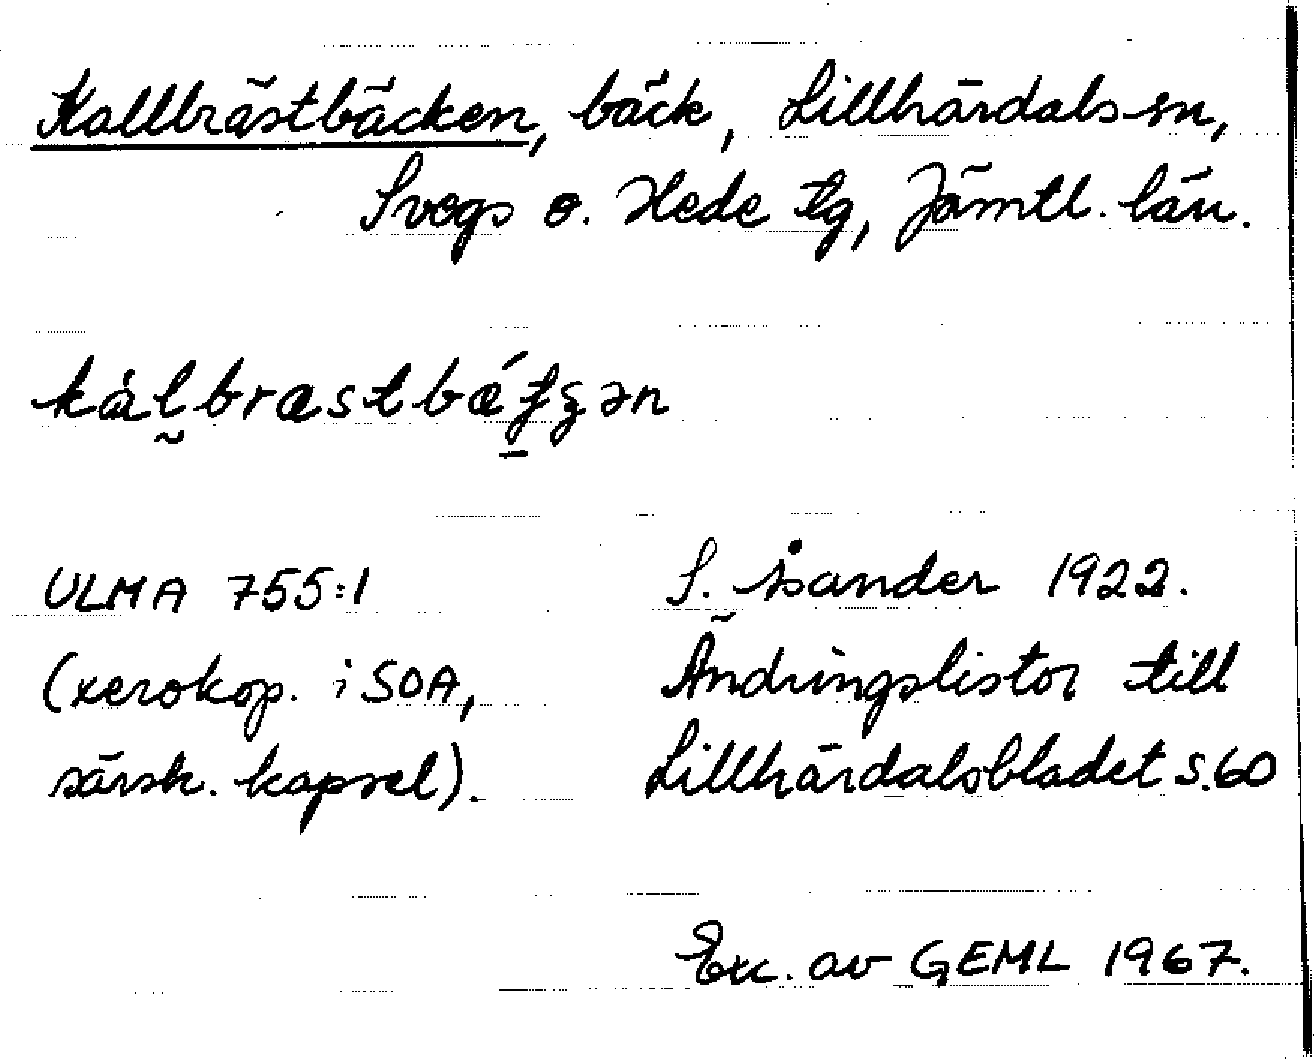 Kallbrästbäcken, bäck, Lillhärdals sn,
Svegs o. Hede tg, Jämtl. län.
kálbræstbǽƒʒən
ULMA 755:1
(xerokop. i SOA,
särsk. kapsel).
S. Åsander 1922.
Ändringslistor till
Lillhärdalsbladet s.60
Exc. av GEML 1967.